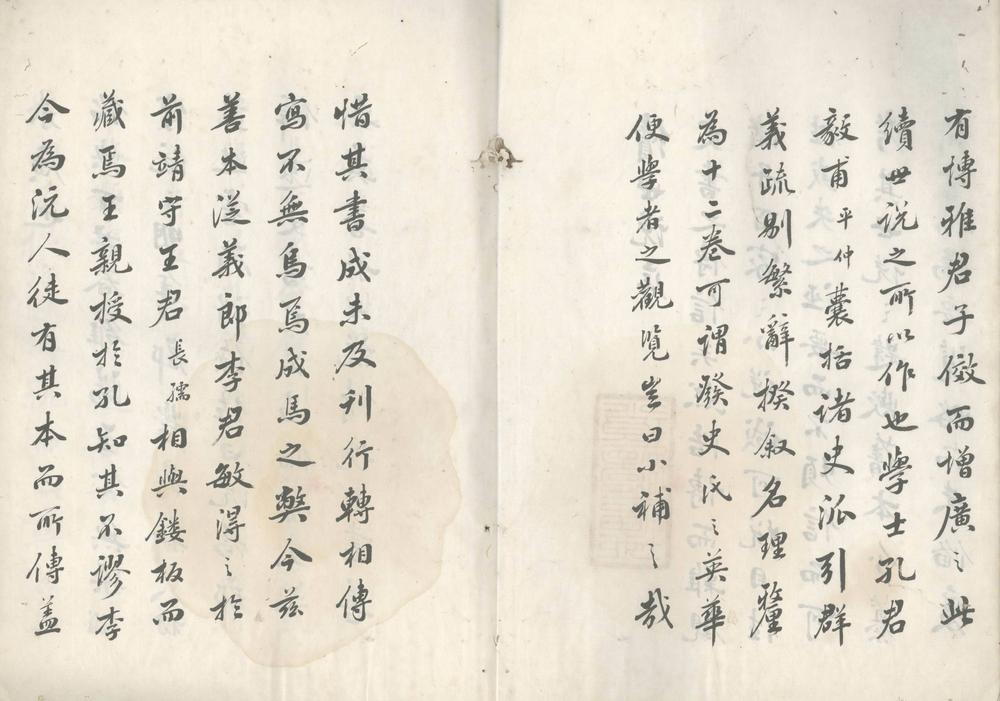 有博雅君子倣而增廣之此
續世說之所以作也學士孔君
毅甫平仲囊括諸史派引群
義疏剔繁辭揆叙名理釐
為十二卷可謂發史氏之英華
便學者之觀覽豈曰小補之哉
惜其書成未及刊行轉相傳
寫不無烏焉成馬之弊今茲
善本從義郎李君敏得之於
前靖守王君長孺相與鏤板而
藏焉王親授於孔知其不謬李
今為沅人徒有其本而所傳蓋